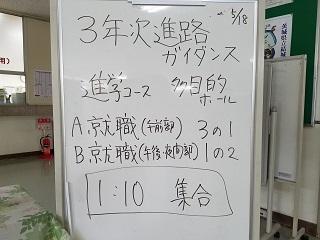 3年次進路 5/18
ガイダンス
進学コース 多目的
ホール
A.就職(午前部) 3の1
B.就職(午後・夜間部) 1の2
1:10 集合
茨城県立結城